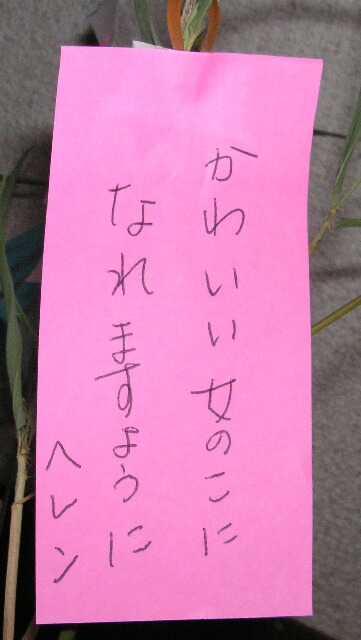 かわいい女のこに
なれますように
ヘレン